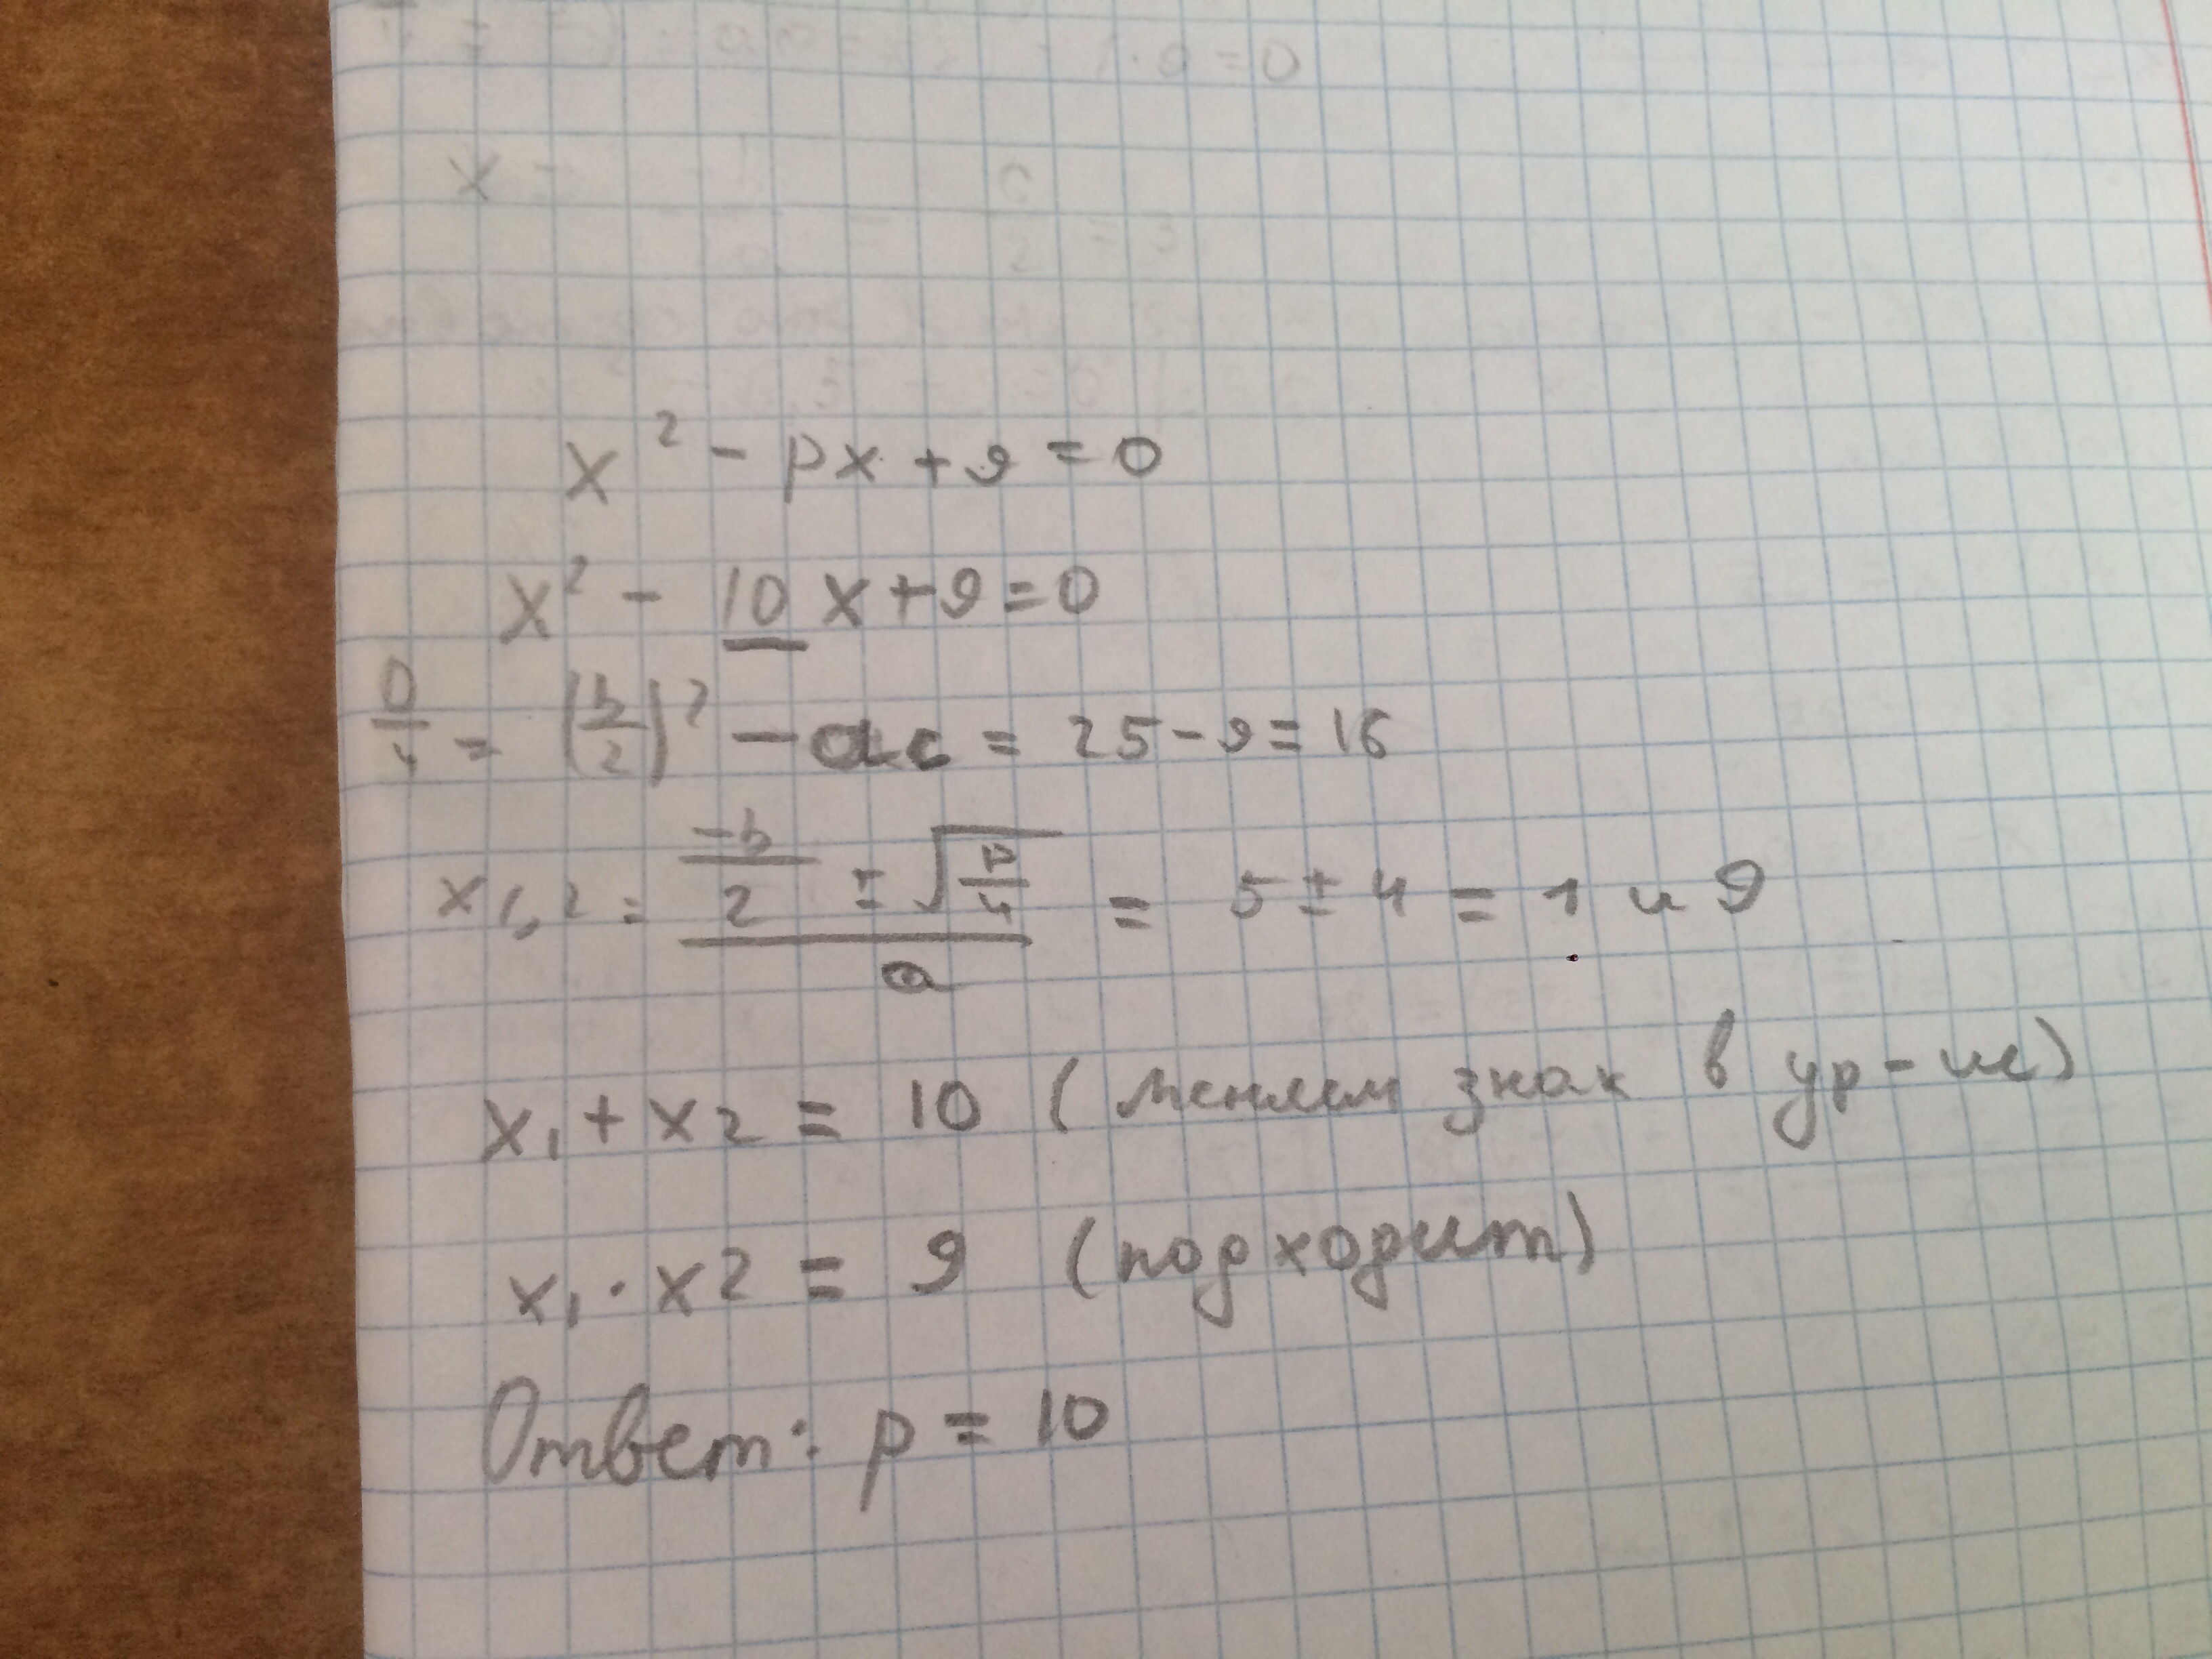 x² - px + 9 = 0
x² - 10 x + 9 = 0
D/4 = (b/2)² - ac = 25 - 9 = 16
x1,2 = (-b/2 ± √(D/4))/a = 5 ± 4 = 1 и 9
x1 + x2 = 10 (меняем знак в ур-ие)
x1 · x2 = 9 (подходит)
Ответ: p = 10